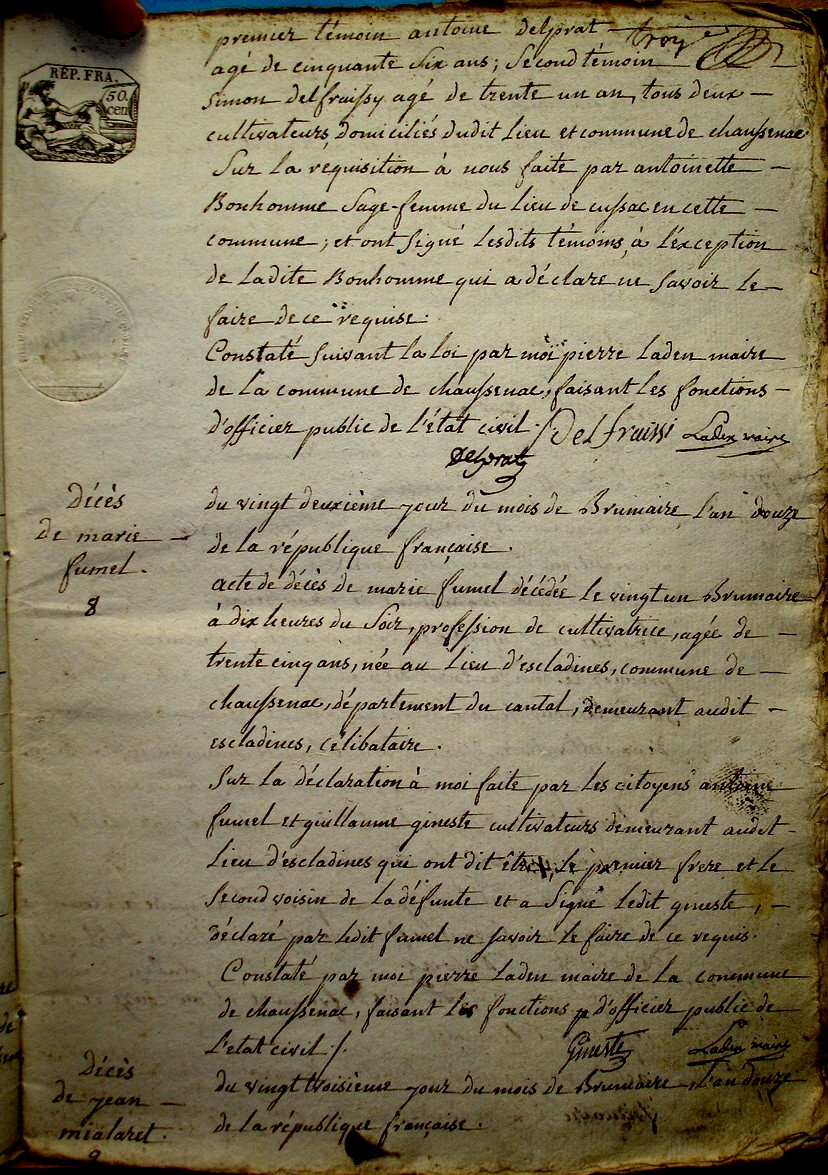 RÉP. FRA.
50.
cen
premier témoin antoine delprat troy
agé de cinquante six ans; Second témoin
Simon delfraissy agé de trente un an, tous deux —
cultivateurs domiciliés dudit Lieu et commune de chaussenac
Sur la réquisition à nous faite par antoinette —
Bonhomme Sage-femme du Lieu de cussac en cette —
commune; et ont Signé Lesdits témoins, à l'éxception
de Ladite Bonhomme qui a déclaré ne Savoir le —
faire de ce requise.
Constaté Suivant la loi par moi pierre Laden maire
de la commune de chaussenac, faisant les fonctions —
d'officier public de l'état civil./. Delfraissi Laden maire
Delprat
Décès
de marie —
fumel.
8
du vingt deuxième jour du mois de Brumaire l'an douze
de la république française.
acte de décès de marie fumel décédée le vingt un Brumaire
à dix heures du Soir, profession de cultivatrice, agée de —
trente cinq ans, née au Lieu d'escladines, commune de —
chaussenac, département du cantal, demeurant audit —
escladines, célibataire.
Sur la déclaration à moi faite par les citoyens antoine
fumel et guillaume gineste cultivateurs demeurant audit —
Lieu d'escladines qui ont dit être, le premier frere et le
Second voisin de la défunte et a Signé ledit gineste, —
déclaré par ledit fumel ne savoir le faire de ce requis.
Constaté par moi pierre Laden maire de la commune
de chaussenac, faisant les fonctions d'officier public de
l'etat civil./. Gineste Laden maire
Décès
de jean —
mialaret.
9
du vingt troisième jour du mois de Brumaire, l'an douze
de la république française.